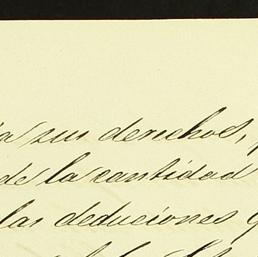 a sus derechos,
de la cantidad
las deduciones